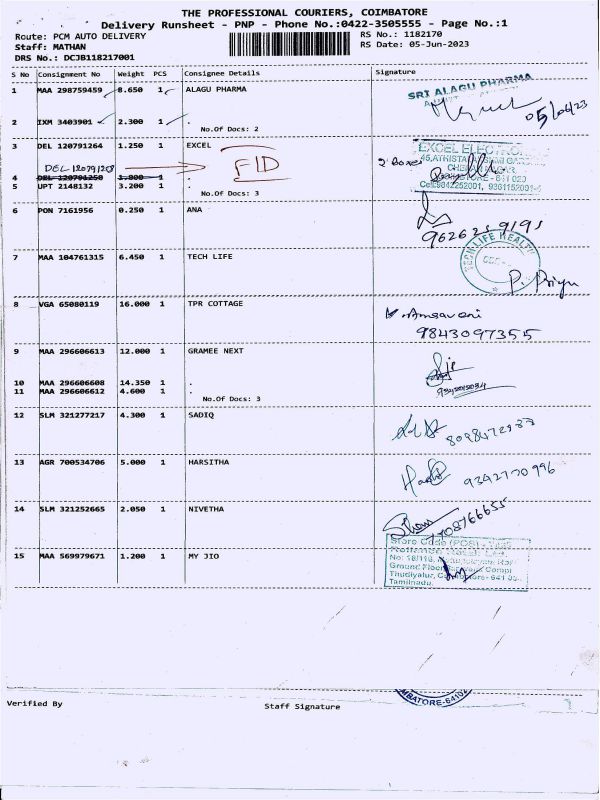 THE PROFESSIONAL COURIERS, COIMBATORE
Delivery Runsheet - PNP - Phone No.:0422-3505555 - Page No.:1
Route: PCM AUTO DELIVERY RS No.: 1182170
Staff: MATHAN RS Date: 05-Jun-2023
DRS No.: DCJB118217001
S No Consignment No Weight PCS Consignee Details Signature
1 MAA 298759459 8.650 1 ALAGU PHARMA
SRI ALAGU PHARMA
05/06/23
2 IXM 3403901 2.300 1 .
No.Of Docs: 2
3 DEL 120791264 1.250 1 EXCEL
FID
2 Boxes
4 DEL 120791250 1.800 1
5 UPT 2148132 3.200 1 .
No.Of Docs: 3
6 PON 7161956 0.250 1 ANA
9626259191
7 MAA 104761315 6.450 1 TECH LIFE
TECH LIFE HEALTH
P. Priya
8 VGA 65080119 16.000 1 TPR COTTAGE
9843097355
9 GRAMEE NEXT MAA 296606613 12.000 1
10 MAA 296606608 14.350 1 .
11 MAA 296606612 4.600 1 .
No.Of Docs: 3
12 SLM 321277217 4.300 1 SADIQ
13 AGR 700534706 5.000 1 HARSITHA
9342770996
14 SLM 321252665 2.050 1 NIVETHA
15 MAA 569979671 1.200 1 MY JIO
Ground Floor
Tamilnadu
Verified By Staff Signature